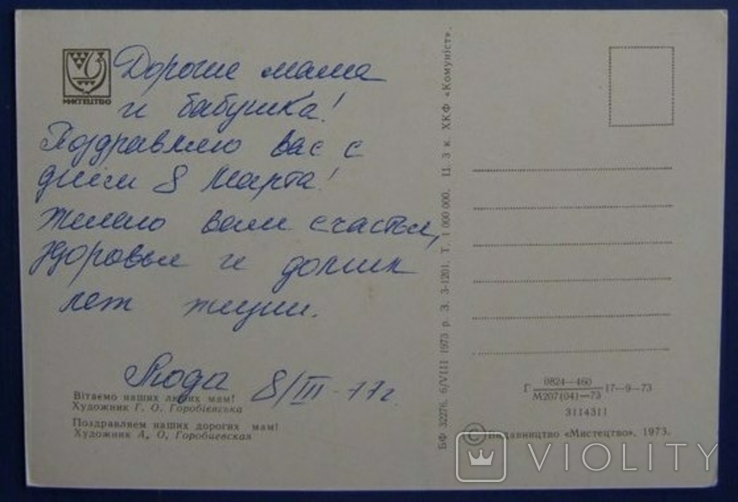 МИСТЕЦТВО
Дорогие мама
и бабушка!
Поздравляю вас с
днём 8 Марта!
Желаю вам счастья,
здоровья и долгих
лет жизни.
Люда 8/III-77г.
Вітаємо наших любих мам!
Художник Г. О. Горобієвська
Поздравляем наших дорогих мам!
Художник А. О. Горобиевская
БФ 32276. 6/VIII 1973 р. З. 3-1201. Т. 1 000 000. Ц. 3 к. ХКФ «Комуніст».
Г 0824—460 17—9—73
М207(04)—73
3114311
© Видавництво «Мистецтво», 1973.
VIOLITY